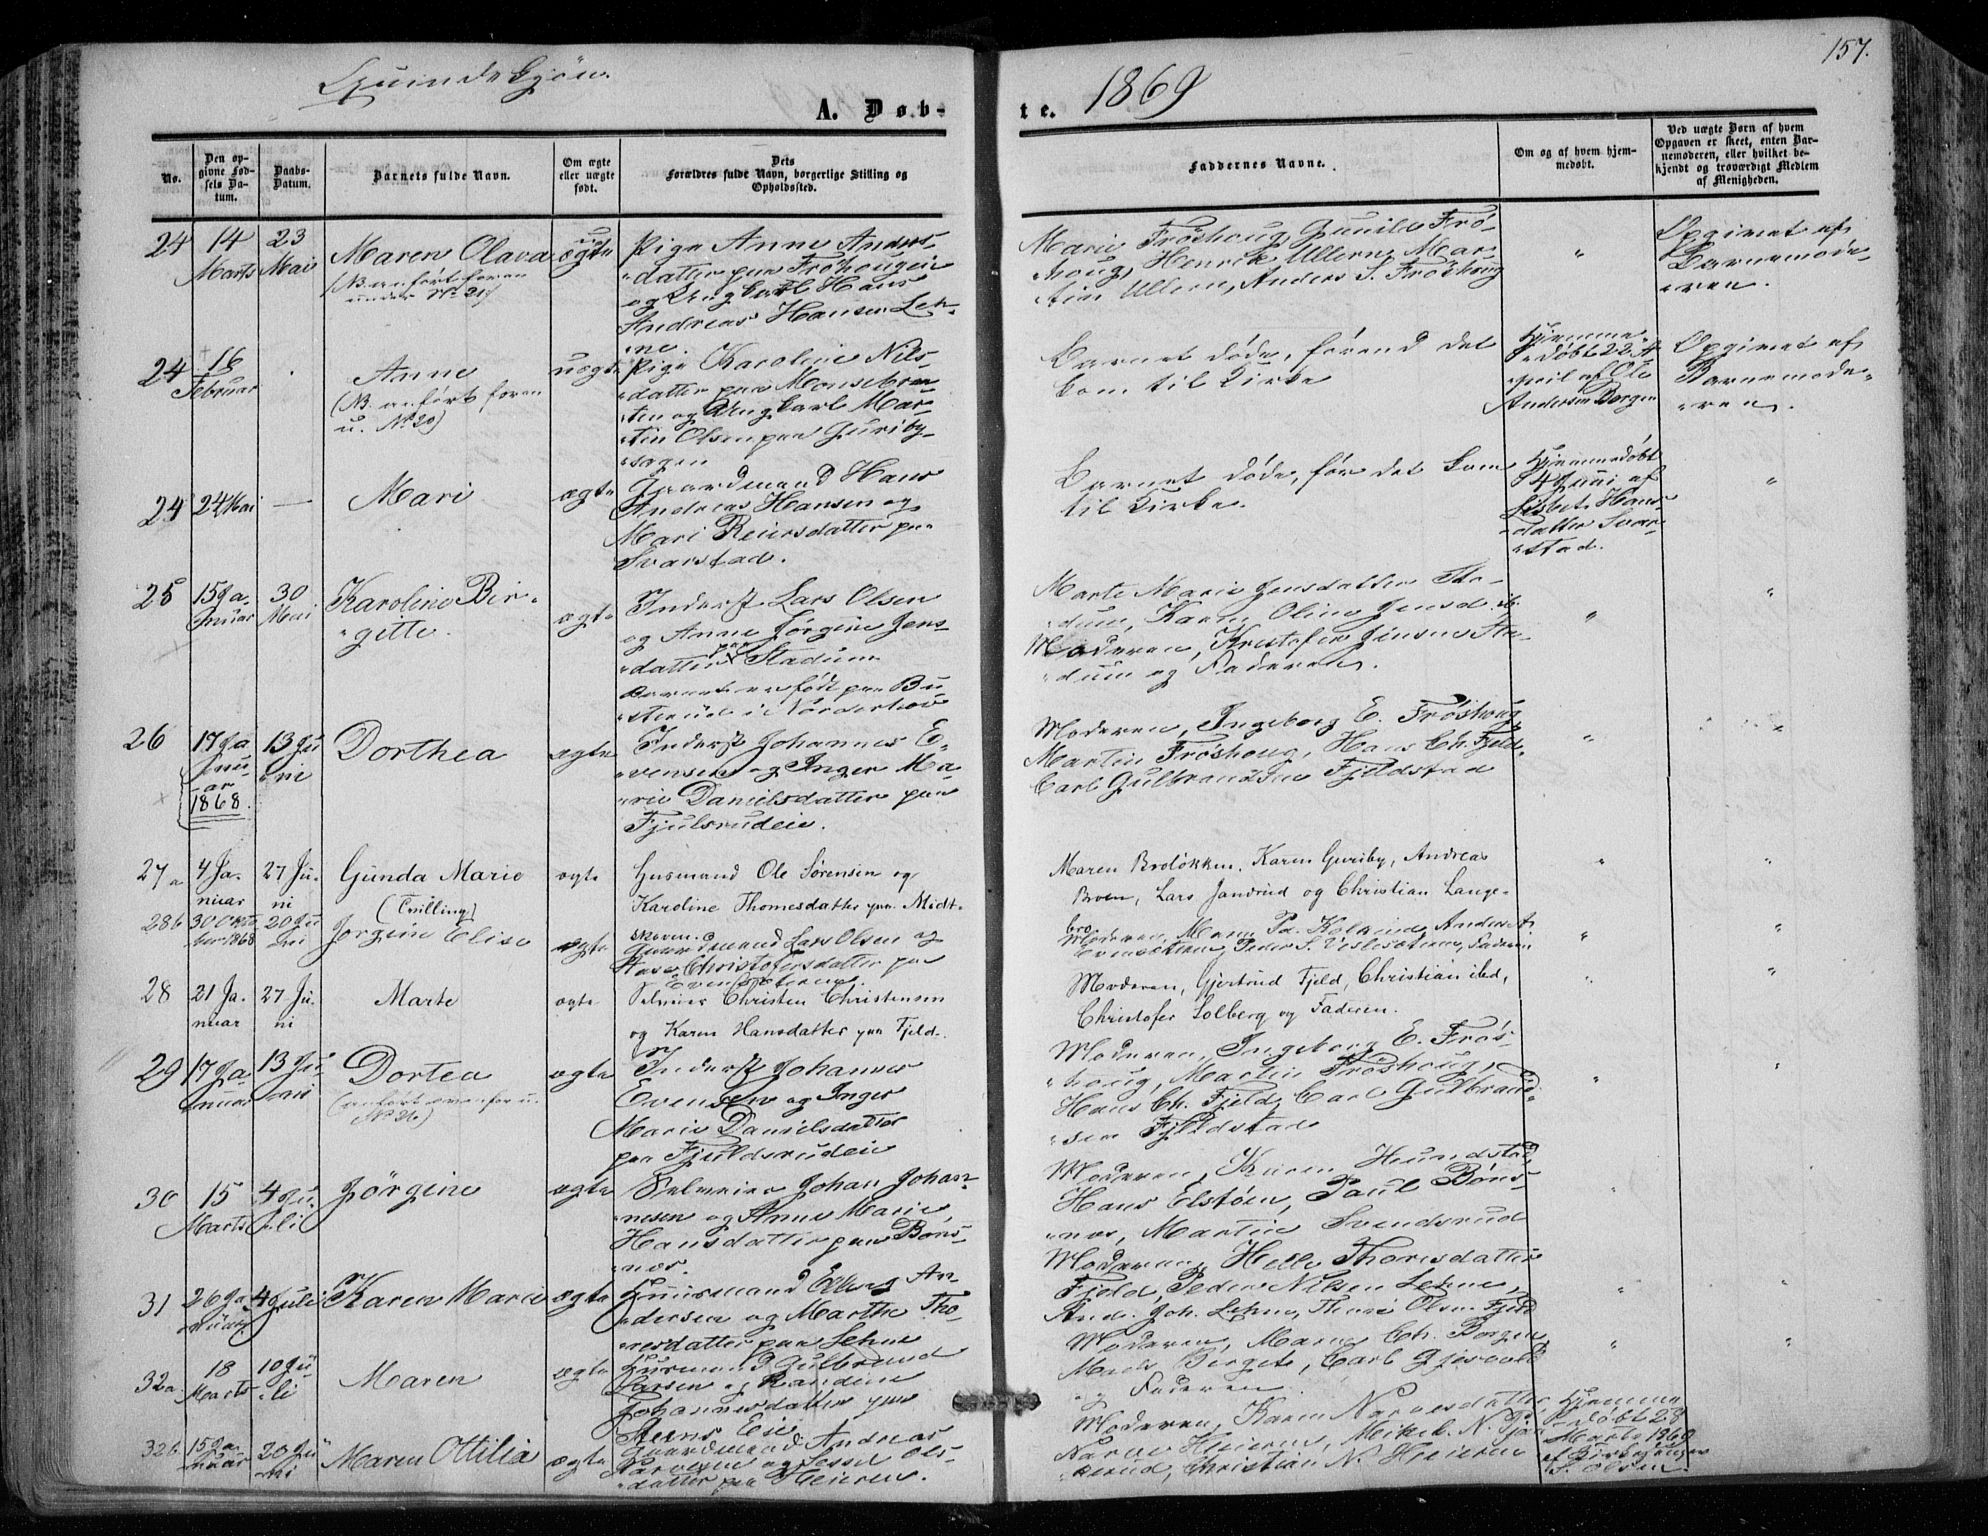 Qvindekjön.
1869
157.
A. Døb-
te.
No.
Den op-
givne Fød-
sels Da-
tum.
Daabs-
Datum.
Barnets fulde Navn.
Om ægte
eller uægte
født.
Dets
Forældres fulde Navn, borgerlige Stilling og
Opholdssted.
Faddernes Navne.
Om og af hvem hjem-
medøbt.
Ved uægte Børn af hvem
Opgaven er skeet, enten Bar-
nemoderen, eller hvilket be-
kjendt og troværdigt Medlem
af Menigheden.
24
14
Marts
23
Mai
Maren Olava
(NB. anført foran
under No. 21)
uægte
Pige Anne Anders-
datter paa Frøhougeie
og Ungkarl Hans
Andreas Hansen Leh-
ne.
Marie Frøshoug, Gunild Frø-
houg, Henrik Ullern, Mar-
tin Ullern, Anders S. Frøshoug
"
Opgivet af
Barnemode-
ren.
24
16
Februar
Anne
(NB. anført foran
u. No. 20)
uægte
Pige Karoline Nils-
datter paa
og Ungkarl Mar-
tin Olsen paa Guriby-
sagen
Barnet døde, førend det
kom til Kirke
Hjemme-
døbt 22 A-
pril af Ole
Andersen Borgen
Opgivet af
Barnemode-
ren.
24
24 Mai
—
Mari
ægte
Gaardmand Hans
Andreas Hansen og
Mari Reiersdatter paa
Svarstad.
Barnet døde, før det kom
til Kirke.
Hjemmedøbt
4 Juni af
Lisbet Hans-
datter Svar-
stad.
"
25
15 Ja-
nuar
30
Mai
Karoline Bir-
gitte.
ægte
Inderst Lars Olsen
og Anne Jørgine Jens-
datter paa Stadum
Barnet er født paa Bu-
sterud i Norderhov
Marte Marie Jensdatter Sta-
dum, Karen Oline Jensd. ib.
Moderen, Kristofer Jensen Sta-
dum og Faderen.
"
"
26
17 Ja
nu-
ar
1868.
13 Ju
ni
Dorthea
ægte
Inderst Johannes E-
vensen og Inger Ma-
rie Danielsdatter paa
Fjulsrudeie.
Moderen, Ingeborg E. Frøshoug
Martin Frøshoug, Hans Ch. Fjeld
Carl Gulbrandsen Fjeldstad
"
"
27a
4 Ja-
nuar
27 Ju-
ni
Gunda Marie
(Tvilling)
ægte
Husmand Ole Sørensen og
Karoline Thomesdatter paa Midt-
skoven.
Maren Broløkken, Karen Guriby, Andreas
Broen, Lars Jansrud og Christian Lange-
bro
"
"
28b
30 Okto
ber 1868
20 Ju
ni
Jørgine Elise
ægte
Gaardmand Lars Olsen og
Aase Christofersdatter paa
Evensæteren.
Moderen, Maren Pd. Anders A.
Evensæteren, Peder S. Veslesæteren, Faderen
"
"
28
21 Ja-
nuar
27 Ju-
ni
Marte
ægte
Selveier Christen Christensen
og Karen Hansdatter paa Fjeld.
Moderen, Gjertrud Fjeld, Christian ibd,
Christofer Solberg og Faderen.
"
"
29
17 Ja
nuar
13 Ju
ni
Dortea
(anført ovenfor u.
No. 26)
ægte
Inderst Johannes
Evensen og Inger
Marie Danielsdatter
paa Fjuldsrudeie
Moderen, Ingeborg E. Frøs-
houg, Martin Frøshoug,
Hans Ch. Fjeld, Carl Gulbrand-
sen Fjeldstad
"
"
30
15
Marts
4 Ju-
li
Jørgine
ægte
Selveier Johan Johan-
nesen og Anne Marie
Hansdatter paa Bøns-
næs.
Moderen, Karen Hundstad,
Hans Elstøen, Paul Bøns-
næs, Martin Svendsrud
"
31
26 Ja
nuar
4 Juli
Karen Marie
ægte
Huusmand An-
dersen og Marthe Tho-
resdatter paa Lehne
Moderen, Helle Thoresdatter
Fjeld, Peder Nilsen Lehne,
And. Joh. Lehne, Olsen Fjeld
"
"
32a
18
Marts
10 Ju-
li
Maren
ægte
Husmand Gulbrand
Larsen og Randine
Johannesdatter paa
Steens Eie
Moderen, Maren Ch. Borgen
Mads Berget, Carl
og Faderen.
"
"
32b
15 Ja
nuar
20 Ju
ni
Maren Ottilia
ægte
Gaardmand Andreas
Narvesen og Ols-
datter paa Heieren.
Moderen, Karen Narvesdatter
Narve Heieren, Mikel N.
Christian N. Heieren
Hjemme
døbt 28
Marts 1869
af Kirkesanger
S. Olsen.